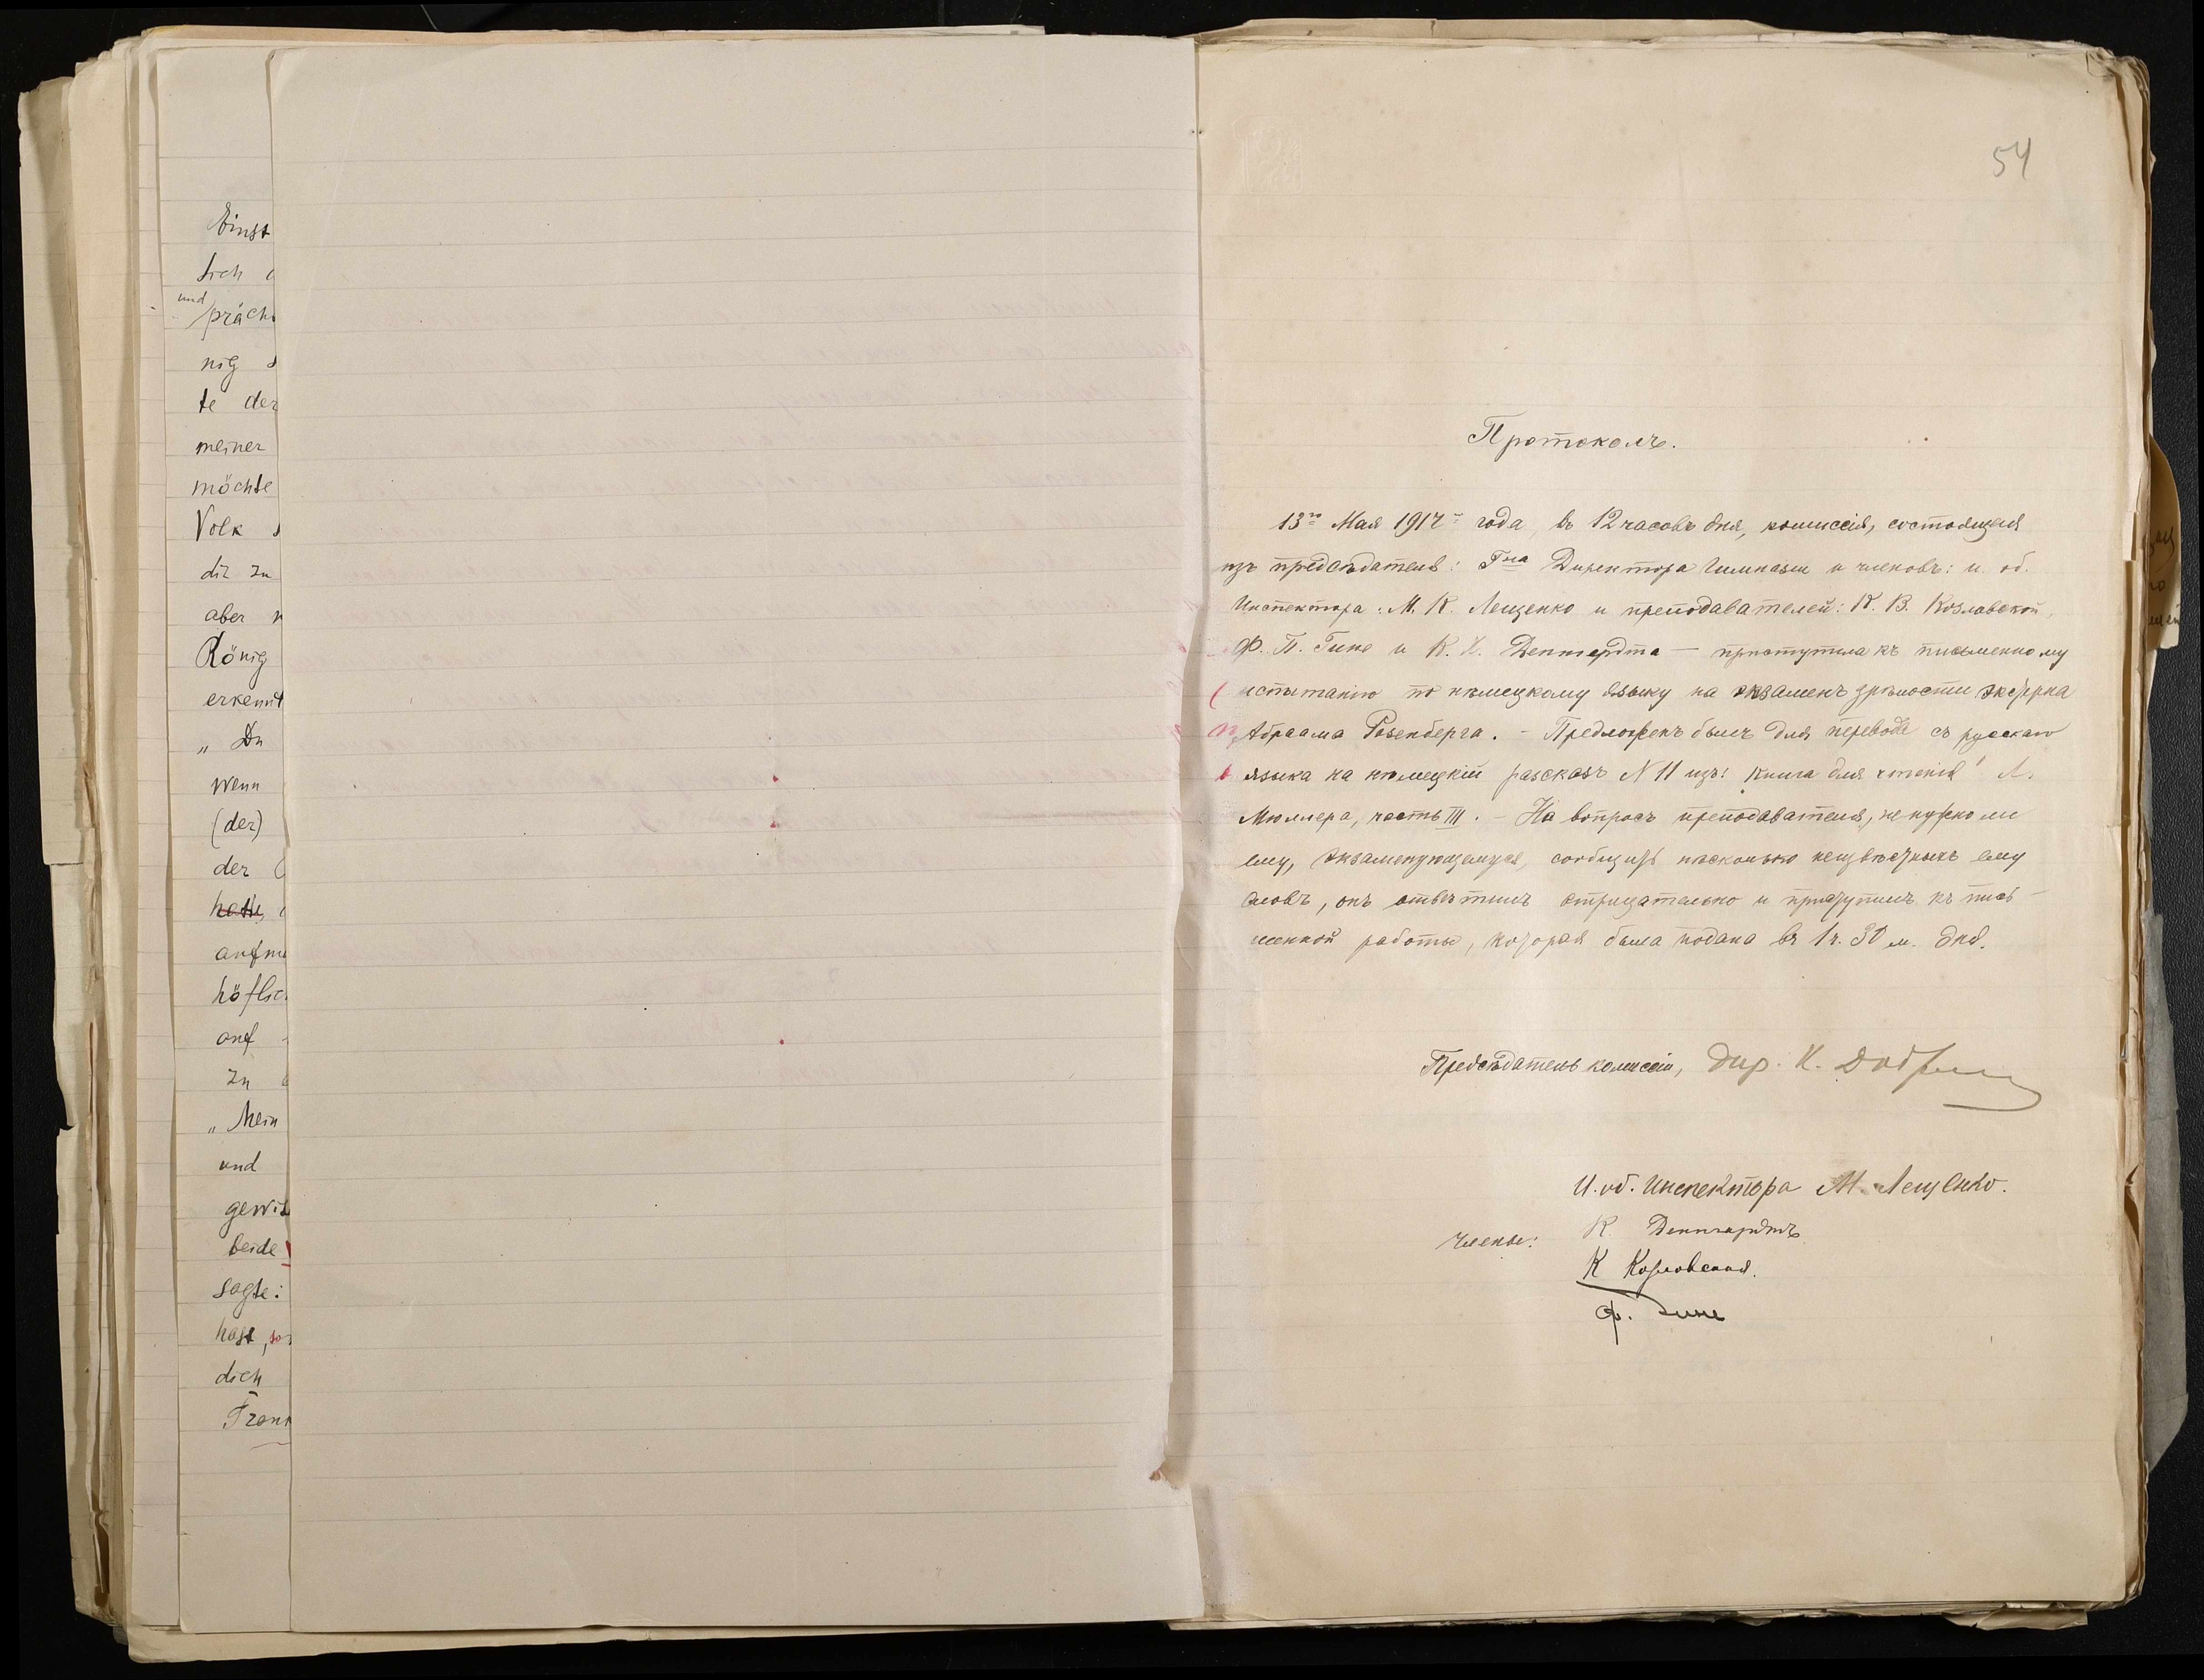 Einst
sich
und
präch
nig
te der
meiner
möchte
Volk
dir zu
aber
König
erkennt
„ Du
wenn
(der)
der
hatte,
aufme
höflic
auf
zu
„ Mein
und
gewis
beide
sagte:
hast, so
dich
Trom
54
Протоколъ.
13го Мая 1917 года, въ 12 часовъ дня, комиссія, состоящая
изъ предсѣдателя: Гна Директора Гимназіи и членовъ: и. об.
Инспектора: М. К. Лещенко и преподавателей: К. В. Козловской,
Ф. П. Гине и К. Х. Деппердта — приступила къ письменному
испытанію по нѣмецкому языку на экзаменъ зрѣлости экстерна
Абраама Розенберга. - Предложенъ былъ для перевода съ русскаго
языка на нѣмецкій разсказъ N 11 изъ: Книга для чтенія" Л.
Мюллера, часть III. - На вопросъ преподавателя, не нужно ли
ему, экзаменующемуся, сообщить нѣсколько неизвѣстныхъ ему
словъ, онъ отвѣтилъ отрицательно и приступилъ къ пись-
менной работѣ, которая была подана въ 1 ч. 30 м. дня.
Предсѣдатель комиссіи, Дир. К.
И. об. Инспектора М. Лещенко.
Члены: К.
К Козловская.
Ф. Гине